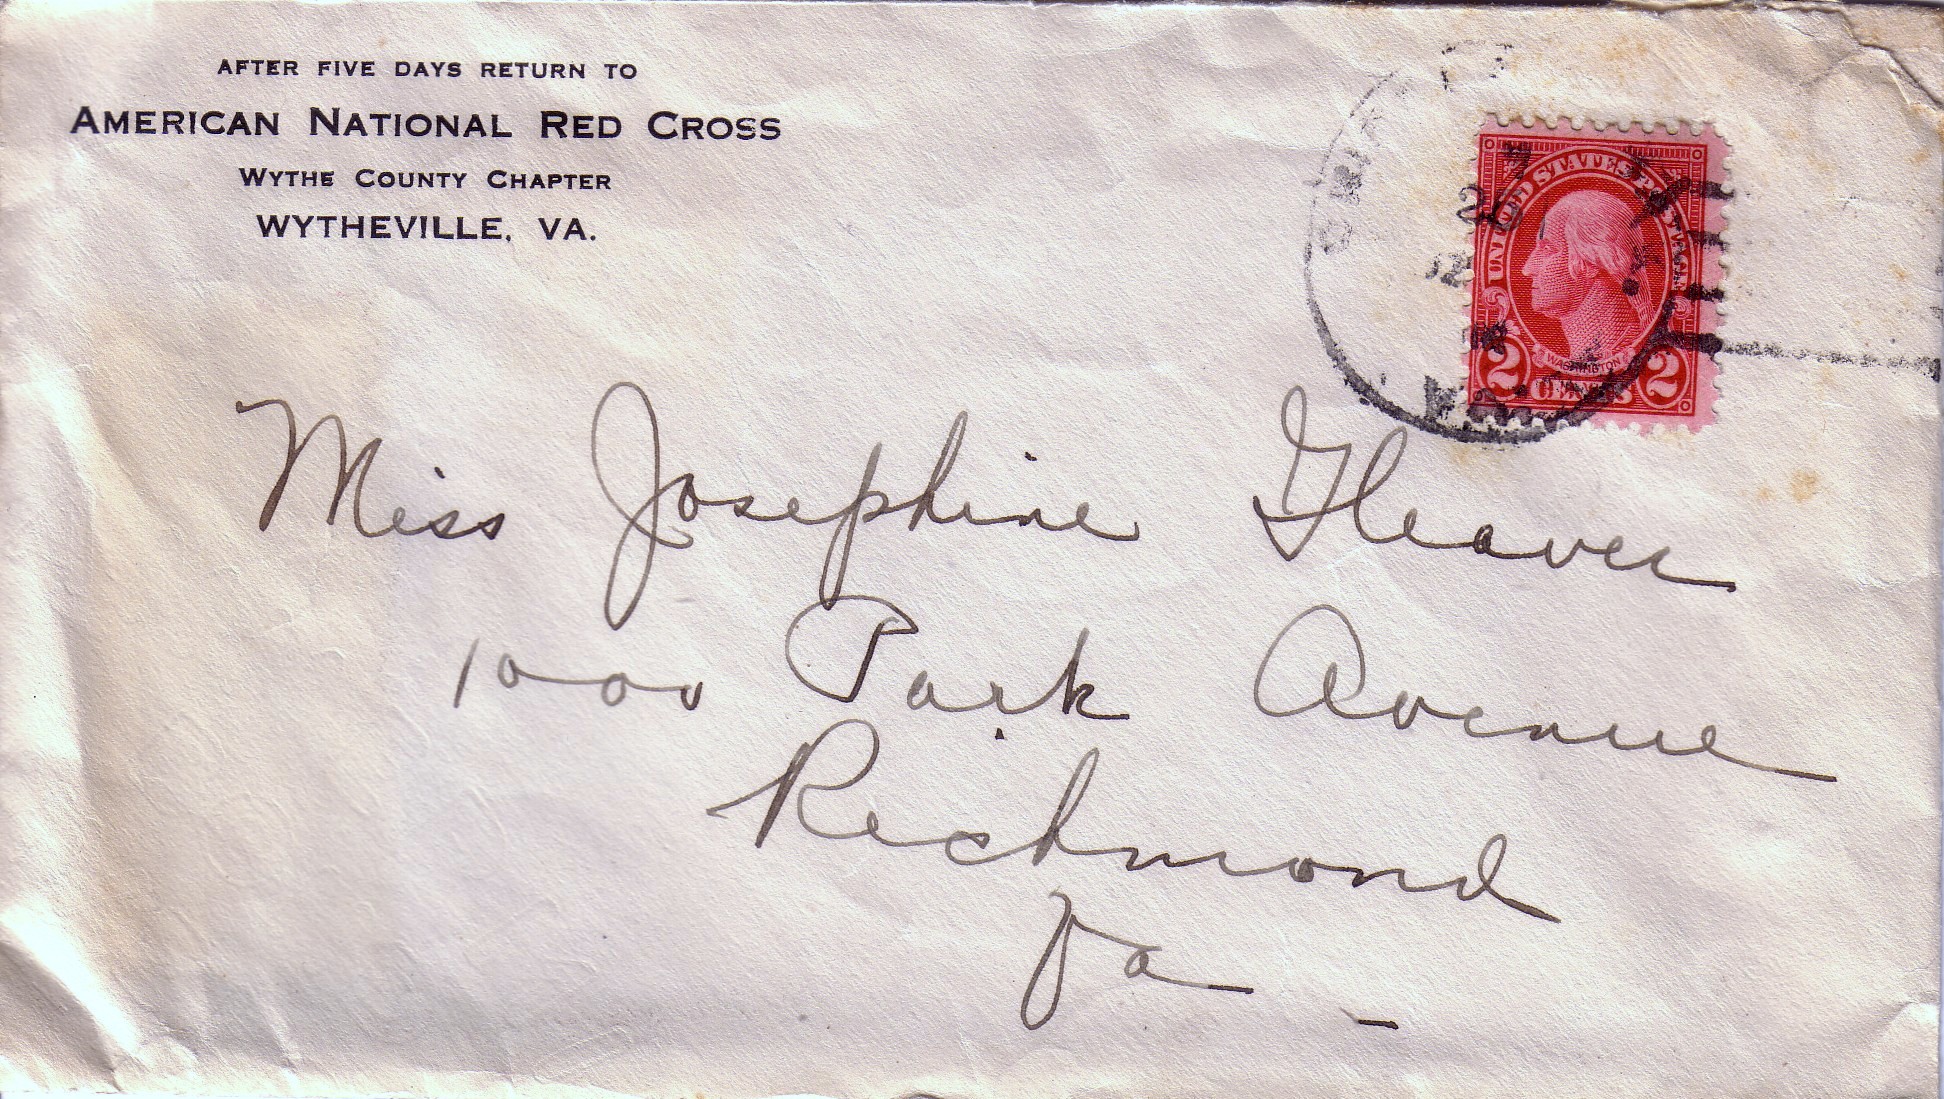 AFTER FIVE DAYS RETURN TO
AMERICAN NATIONAL RED CROSS
WYTHE COUNTY CHAPTER
WYTHEVILLE, VA.
UNITED STATES POSTAGE
WASHINGTON
2 CENTS 2
Miss Josephine Gleaves
1000 Park Avenue
Richmond
Va